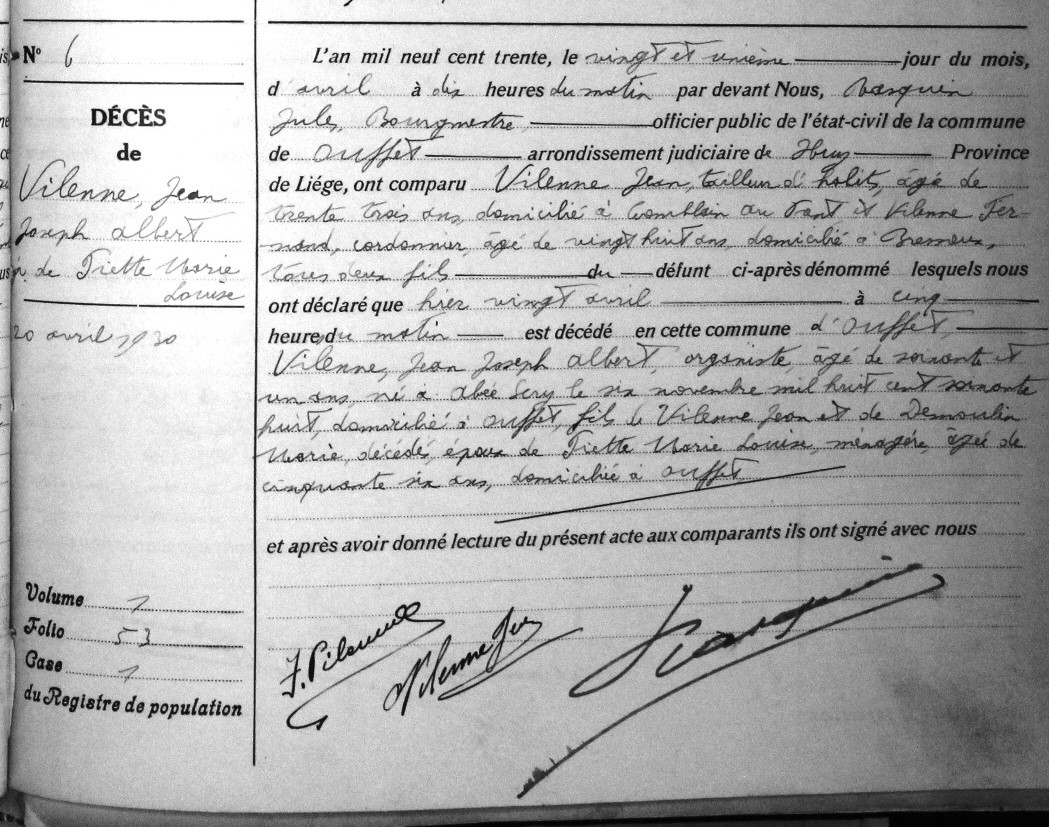 N° 6
DÉCÈS
de
Vilenne, Jean
Joseph Albert
de Tiette Marie
Louise
20 avril 1930
Volume 1
Folio 53
Case 1
du Registre de population
L'an mil neuf cent trente, le vingt et unième jour du mois,
d'avril à dix heures du matin par devant Nous,
Jules, Bourgmestre, officier public de l'état-civil de la commune
de Ouffet arrondissement judiciaire de Huy Province
de Liége, ont comparu Vilenne Jean, tailleur d'habits, âgé de
trente trois ans, domicilié à Comblain au Pont et Vilenne Fer-
nand, cordonnier, âgé de vingt huit ans, domicilié à
tous deux fils du défunt ci-après dénommé lesquels nous
ont déclaré que hier vingt avril à cinq
heure du matin est décédé en cette commune d'Ouffet,
Vilenne, Jean Joseph Albert, organiste, âgé de soixante et
un ans, né à Abée Scry le six novembre mil huit cent soixante
huit, domicilié à Ouffet, fils de Vilenne Jean et de Demoulin
Marie, décédés, époux de Tiette Marie Louise, ménagère, âgée de
cinquante six ans, domiciliée à Ouffet
et après avoir donné lecture du présent acte aux comparants ils ont signé avec nous